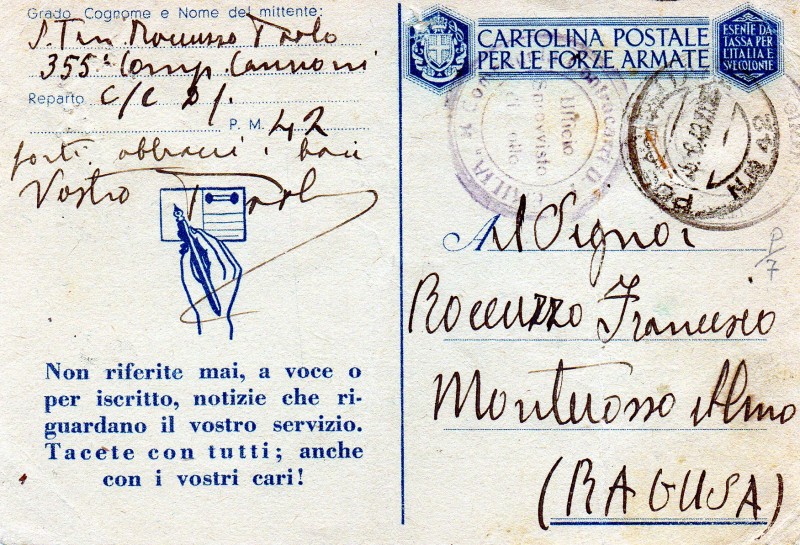 Grado Cognome e Nome del mittente:
S. Ten Roccuzzo Paolo
355ª Comp Cannoni
Reparto C/C D/.
P. M. 42
forti abbracci i baci
Vostro Paolo
Non riferite mai, a voce o
per iscritto, notizie che ri-
guardano il vostro servizio.
Tacete con tutti; anche
con i vostri cari!
CARTOLINA POSTALE
PER LE FORZE ARMATE
ESENTE DA
TASSA PER
L'ITALIA E
SUE COLONIE
Ufficio
Sprovvisto
di bollo
POSTA MILITARE
N. 42
P/7
Al Signor
Roccuzzo Francesco
Monterosso Almo
(RAGUSA)